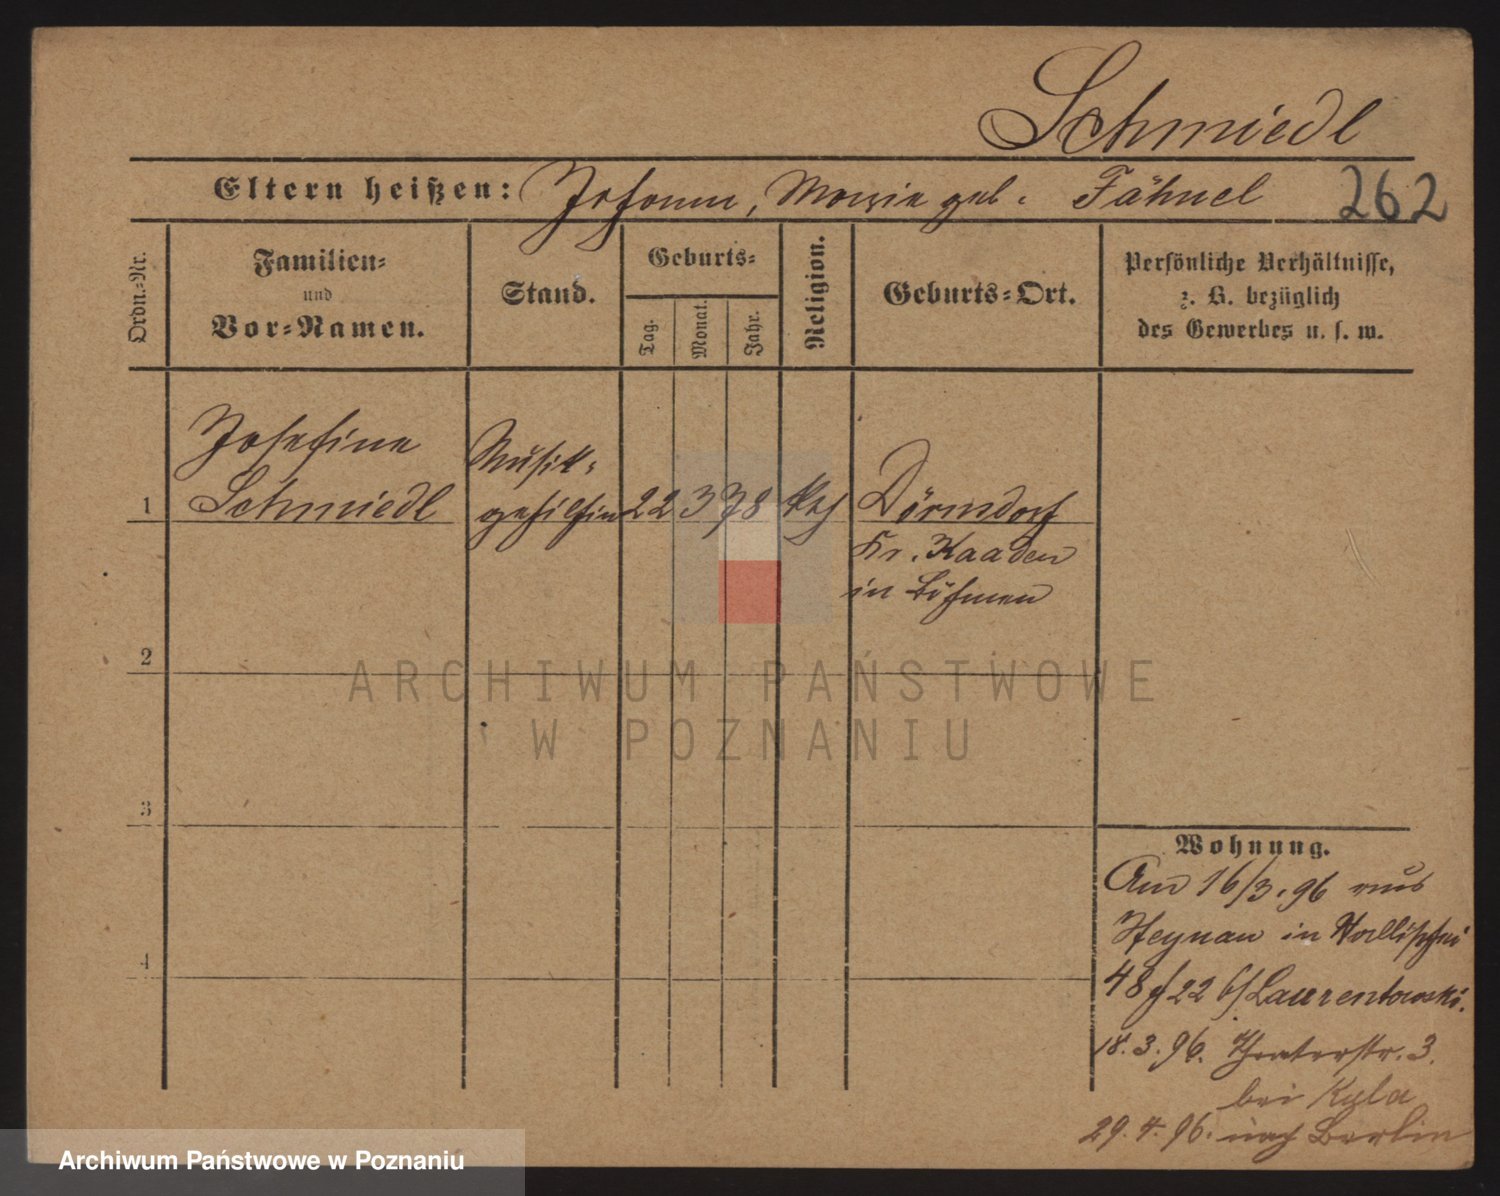 Schmiedl
Eltern heißen: Johann, Marie geb. Fähnel 262
Ordn.-Nr.
Familien-
und
Vor-Namen.
Stand.
Geburts-
Tag.
Monat.
Jahr.
Religion.
Geburts-Ort.
Persönliche Verhältnisse,
z. B. bezüglich
des Gewerbes u. s. w.
1
Josefine
Schmiedl
Musik-
gehilfin
22 3 78
kath
Dörnsdorf
Kr. Kaaden
in Böhmen
2
3
4
Wohnung.
Am 16/3.96 aus
Heynau in Wallischei
48 f 22 b/Laurentowski.
18.3.96. Theaterstr. 3.
bei Kyla
29.4.96. nach Berlin
ARCHIWUM PAŃSTWOWE
W POZNANIU
Archiwum Państwowe w Poznaniu